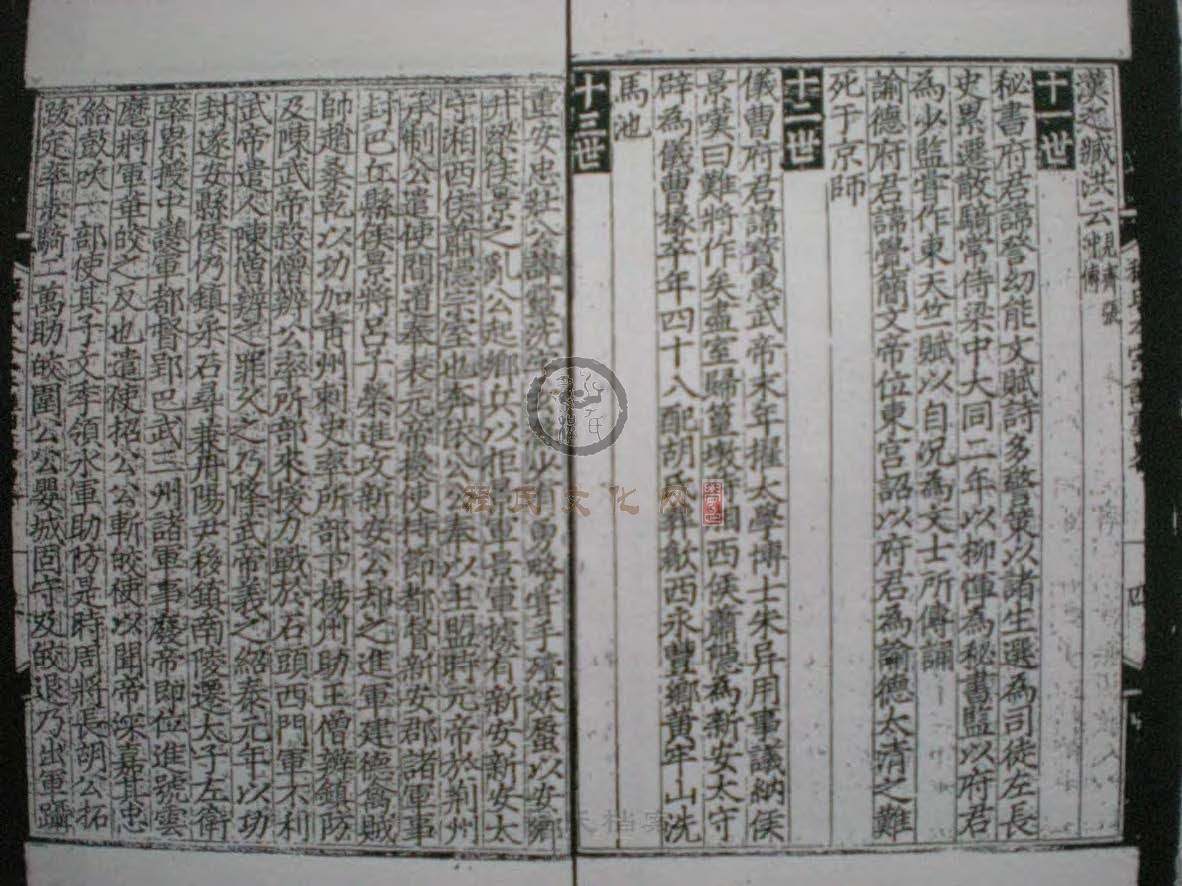 漢之臧洪云見齊張冲傳
十一世
秘書府君諱詧幼能文賦詞多警策以諸生選為司徒左長
史累遷散騎常侍梁中大同二年以柳惲為秘書監以府君
為少監嘗作東天竺賦以自况為文士所傳誦
諭德府君諱覺簡文帝位東宫詔以府君為諭德太清之難
死于京師
十二世
儀曹府君諱寳惠武帝末年擢太學博士朱异用事議納侯
景嘆曰難將作矣盡室歸篁墩 湘西侯蕭隱為新安太守
辟為儀曹掾卒年四十八配胡氏葬歙西永豐鄉黄牢山洗
馬池
十三世
重安忠壯公諱靈洗字 少有勇略嘗手殪妖蜃以安鄉
井梁侯景之亂公起鄉兵以拒景軍景軍據有新安新安太
守湘西侯蕭隱宗室也奔依公公奉以主盟時元帝於荆州
承制公遣使間道奉表元帝授使持節都督新安郡諸軍事
封巴丘縣侯景將吕子榮進攻新安公却之進軍建德禽賊
帥趙桑乾以功加青州刺史率所部下揚州助王僧辨鎮防
及陳武帝殺僧辨公率所部來援力戰於石頭西門軍不利
武帝遣人陳僧辨之罪久之乃降武帝義之紹泰元年以功
封遂安縣侯仍鎮采石尋兼丹陽尹移鎮南陵遷太子左衛
率累授中護軍都督郢巴武三州諸軍事廢帝即位進號雲
麾將軍華皎之反也遣使招公公斬皎使以聞帝深嘉其忠
給鼓吹一部使其子文季領水軍助防是時周將長胡公拓
跋定率步騎二萬助皎圍公公嬰城固守及皎退乃出軍躡
四
程氏文化网